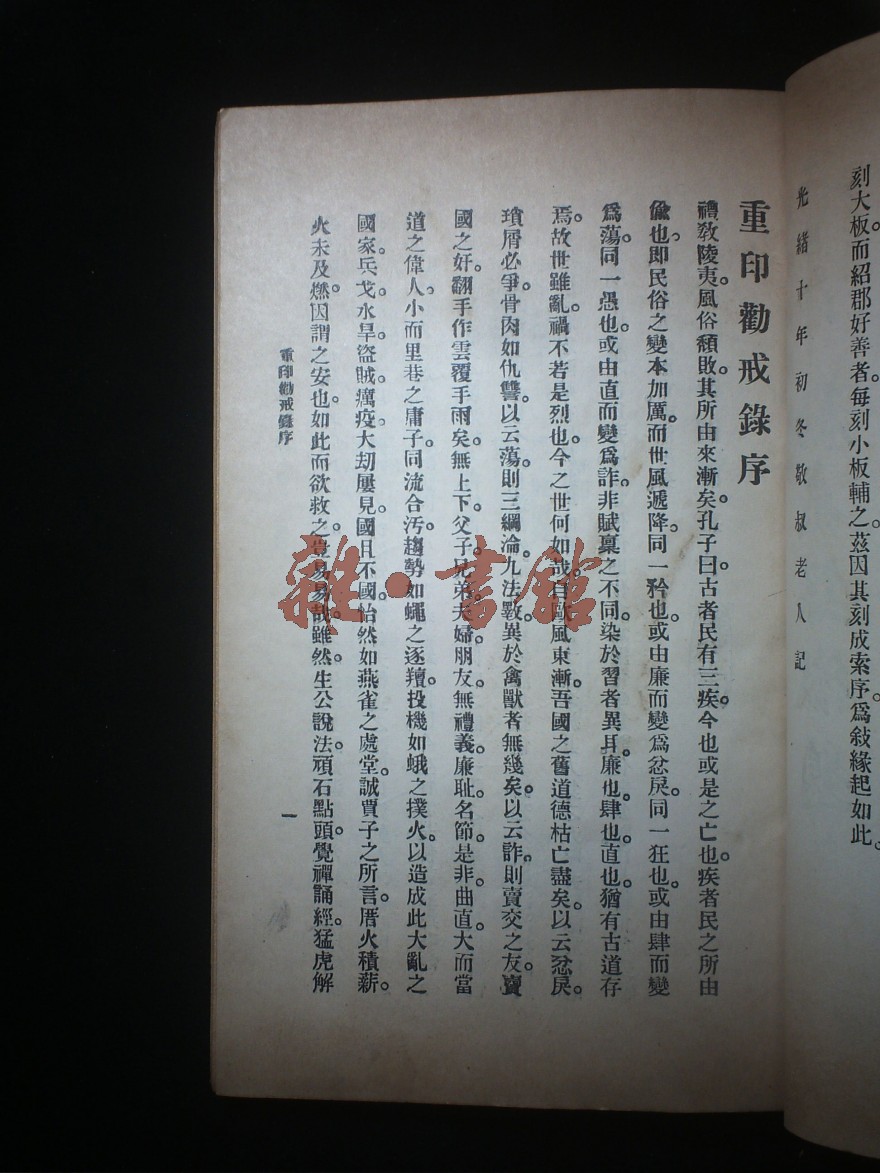 刻大板。而紹郡好善者。每刻小板輔之。茲因其刻成索序。爲敍緣起如此。
光緒十年初冬敬叔老人記
重印勸戒錄序
禮敎陵夷。風俗頹敗。其所由來漸矣。孔子曰。古者民有三疾。今也或是之亡也。疾者民之所由
偸也。卽民俗之變本加厲。而世風遞降。同一矜也。或由廉而變爲忿戾。同一狂也。或由肆而變
爲蕩。同一愚也。或由直而變爲詐。非賦稟之不同。染於習者異耳。廉也。肆也。直也。猶有古道存
焉。故世雖亂。禍不若是烈也。今之世何如哉。自歐風東漸。吾國之舊道德枯亡盡矣。以云忿戾。
瑣屑必爭。骨肉如仇讐。以云蕩。則三綱淪。九法斁。異於禽獸者無幾矣。以云詐。則賣交之友。賣
國之奸。翻手作雲覆手雨矣。無上下。父子。兄弟。夫婦。朋友。無禮義。廉耻。名節。是非。曲直。大而當
道之偉人。小而里巷之庸子。同流合汚。趨勢如蠅之逐羶。投機如蛾之撲火。以造成此大亂之
國家。兵戈。水旱。盜賊。癘疫。大刧屢見。國且不國。怡然如燕雀之處堂。誠賈子之所言。厝火積薪。
火未及燃。因謂之安也。如此而欲救之。豈易易哉。雖然。生公說法。頑石點頭。覺禪誦經。猛虎解
重印勸戒錄序
一
雜·書館